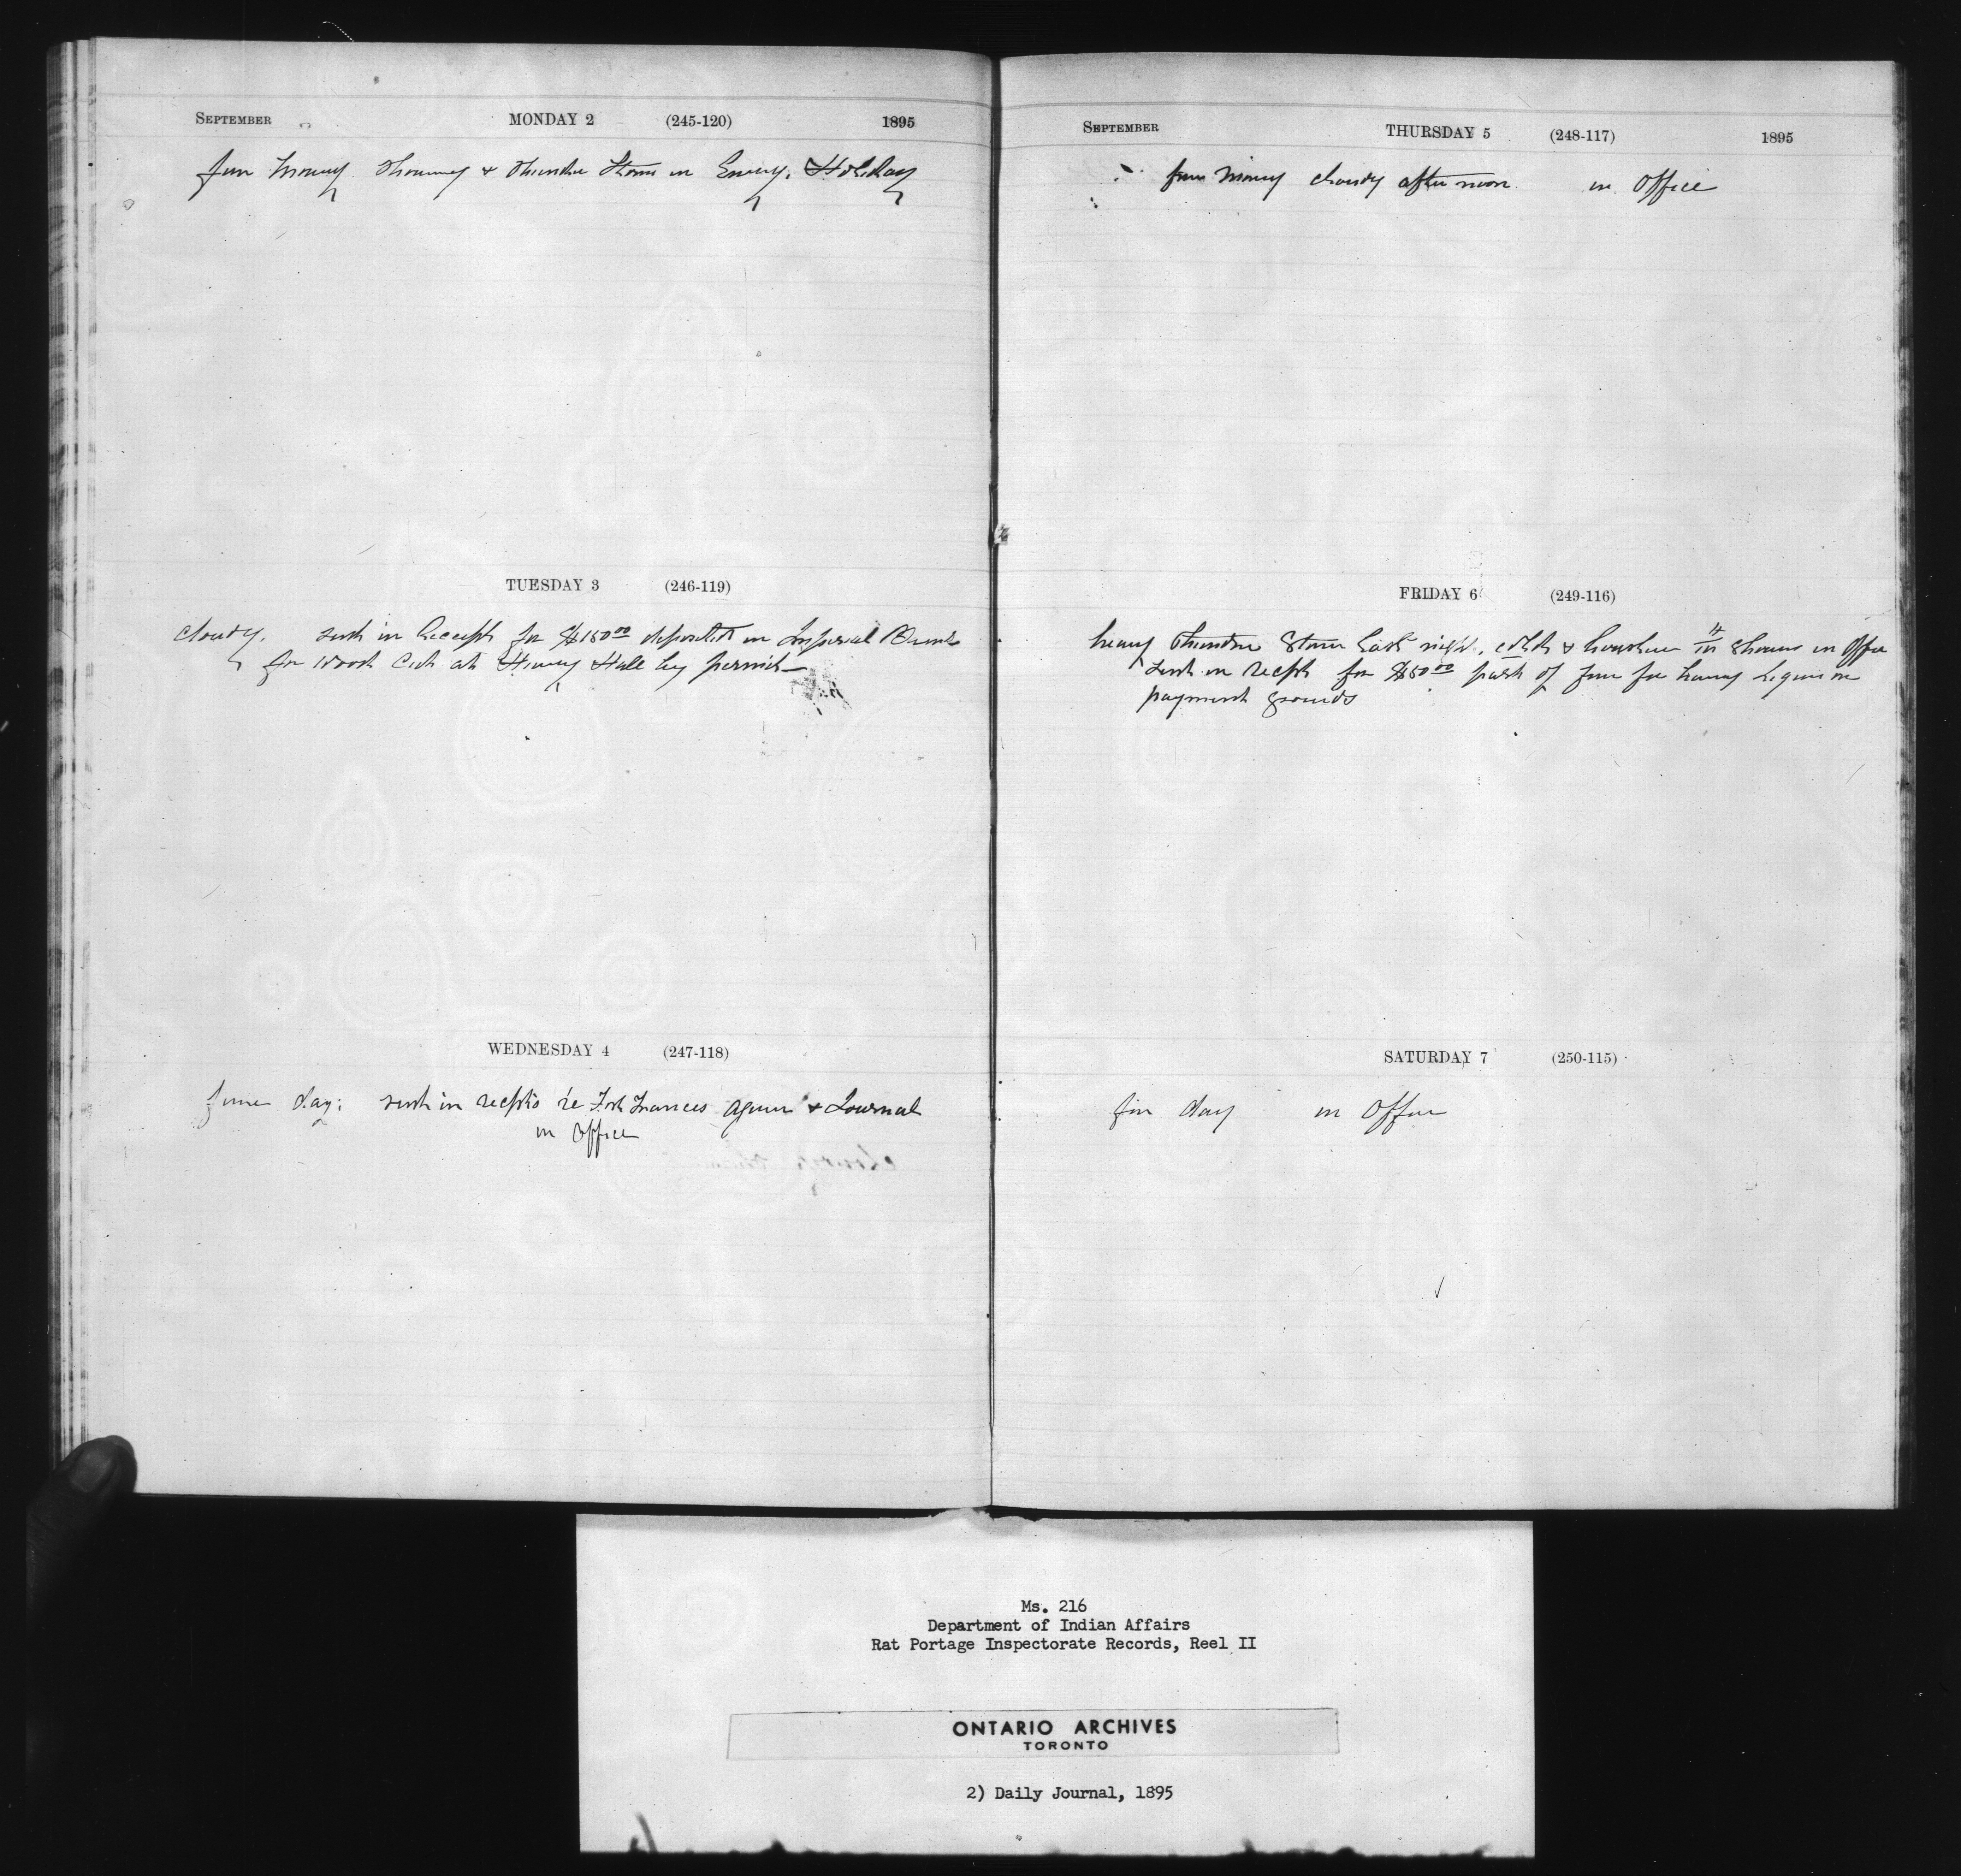 SEPTEMBER MONDAY 2 (245-120) 1895
fine morning Showery & Thunder Storm in Eveng. Holiday
TUESDAY 3 (246-119)
cloudy. sent in Receipt for $150.00 deposited in Imperial Bank
for wood Cut at Hungry Hall by permit
WEDNESDAY 4 (247-118)
fine day: sent in receipts re Fort Frances Agency & Journal
in Office
SEPTEMBER THURSDAY 5 (248-117) 1895
fine morning cloudy afternoon in Office
FRIDAY 6 (249-116)
heavy Thunder Storm Last night, cold & showers in Office
sent in recpt for $50.00 part of fine for having Liquor on
payment grounds
SATURDAY 7 (250-115)
fine day in Office
Ms. 216
Department of Indian Affairs
Rat Portage Inspectorate Records, Reel II
ONTARIO ARCHIVES
TORONTO
2) Daily Journal, 1895